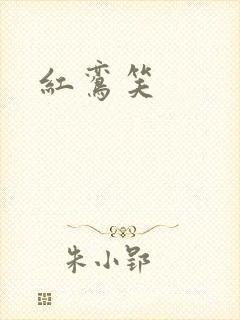 紅鸾笑
朱小郢